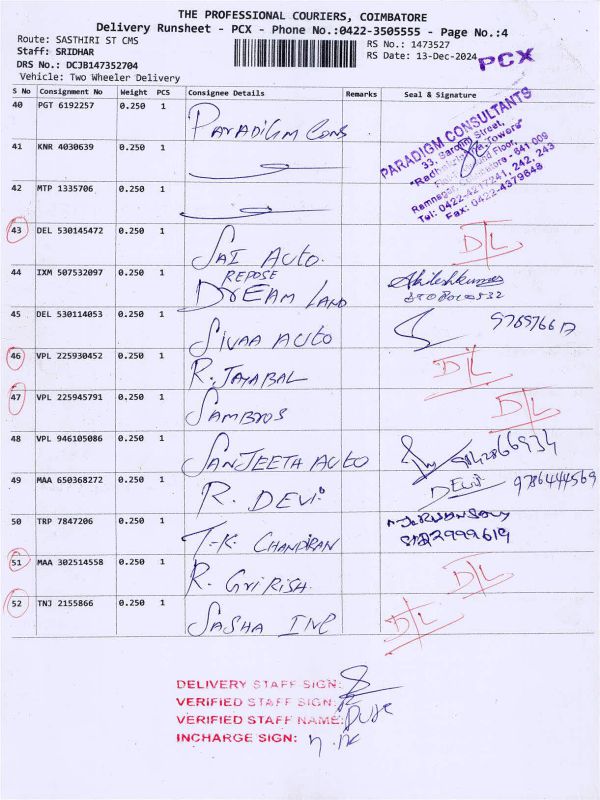 THE PROFESSIONAL COURIERS, COIMBATORE
Delivery Runsheet - PCX - Phone No.:0422-3505555 - Page No.:4
Route: SASTHIRI ST CMS
RS No.: 1473527
Staff: SRIDHAR
RS Date: 13-Dec-2024
PCX
DRS No.: DCJB147352704
Vehicle: Two Wheeler Delivery
S No Consignment No Weight PCS Consignee Details Remarks Seal & Signature
40 PGT 6192257 0.250 1 PARADIGM CONS
PARADIGM CONSULTANTS
33, Sarojini Street,
Floor,
Ramnagar, Coimbatore - 641 009
Tel: 0422-4217241, 242, 243
Fax: 0422-4379648
41 KNR 4030639 0.250 1
42 MTP 1335706 0.250 1
43 DEL 530145472 0.250 1 SAI AUTO. D/L
44 IXM 507532097 0.250 1 REPOSE
DREAM LAND Akileshkumar
45 DEL 530114053 0.250 1 SIVAA AUTO
46 VPL 225930452 0.250 1 R. JAYABAL D/L
47 VPL 225945791 0.250 1 SAMBROS D/L
48 VPL 946105086 0.250 1 SANJEETA AUTO 9842866934
49 MAA 650368272 0.250 1 R. DEVI. DEVI 9786444569
50 TRP 7847206 0.250 1 T.K. CHANDIRAN
51 MAA 302514558 0.250 1 R. GIRISH. D/L
52 TNJ 2155866 0.250 1 SASHA INC D/L
DELIVERY STAFF SIGN:
VERIFIED STAFF SIGN:
VERIFIED STAFF NAME:
INCHARGE SIGN: